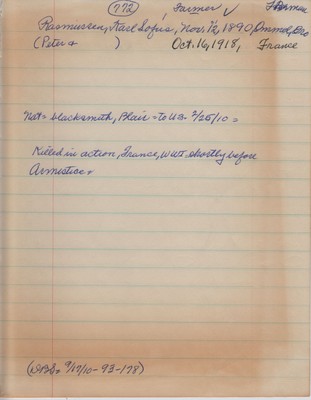 772 Farmer Farmer
Rasmussen, Karl Sofus, Nov. 12, 1890,
(Peter & ) Oct. 16, 1918, France
Nat = blacksmith, Blair = to US 2/25/10 =
Killed in action, France, WWI shortly before
Armistice.
9/17/10 - 93-178)